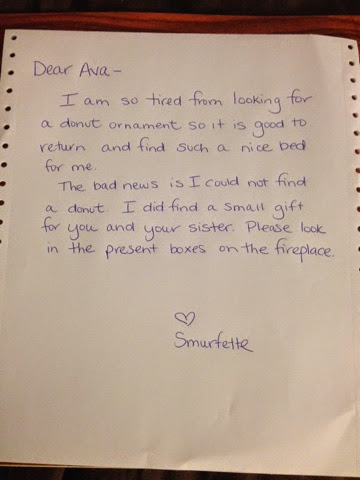 Dear Ava-
I am so tired from looking for
a donut ornament so it is good to
return and find such a nice bed
for me.
The bad news is I could not find
a donut. I did find a small gift
for you and your sister. Please look
in the present boxes on the fireplace.
♡
Smurfette